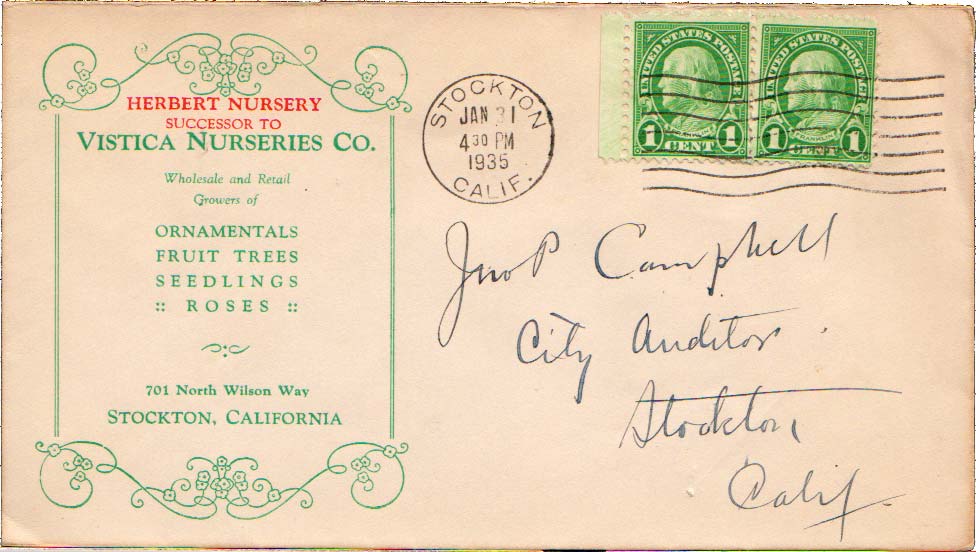 HERBERT NURSERY
SUCCESSOR TO
VISTICA NURSERIES CO.
Wholesale and Retail
Growers of
ORNAMENTALS
FRUIT TREES
SEEDLINGS
:: ROSES ::
701 North Wilson Way
STOCKTON, CALIFORNIA
STOCKTON
JAN 31
4 30 PM
1935
CALIF.
UNITED STATES POSTAGE
FRANKLIN
1 CENT 1
UNITED STATES POSTAGE
FRANKLIN
1 CENT 1
Jno P Campbell
City Auditor
Stockton
Calif.